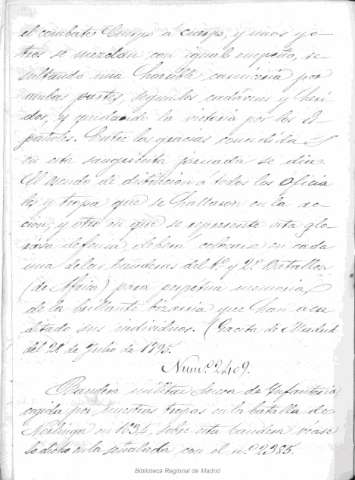 el combate cuerpo á cuerpo, y unos y o-
tros se mezclan con igual empeño, re-
sultando una horrible carnicería por
ambas partes seguida cadáveres y heri-
dos, y quedando la victoria por los Es-
pañoles. Entre las gracias concedidas
en esta sangrienta jornada se dió
el escudo de distincion á todos los oficia-
les y tropa que se hallaron en la ac-
cion; y otro en que se represente esta glo-
riosa defensa deberá colocarse en cada
una de las banderas del 1º. y 2º. Batallon
(de Africa) para perpetua memoria
de la brillante bizarria que han acre-
ditado sus individuos. (Gaceta de Madrid
del 21 de Julio de 1795.
Num.º 2409.
Bandera militar Sueca de Infantería
cogida por nuestras tropas en la batalla de
Norlinga en 1634. Sobre esta bandera véase
lo dicho en la señalada con el nº. 2385.
Biblioteca Regional de Madrid